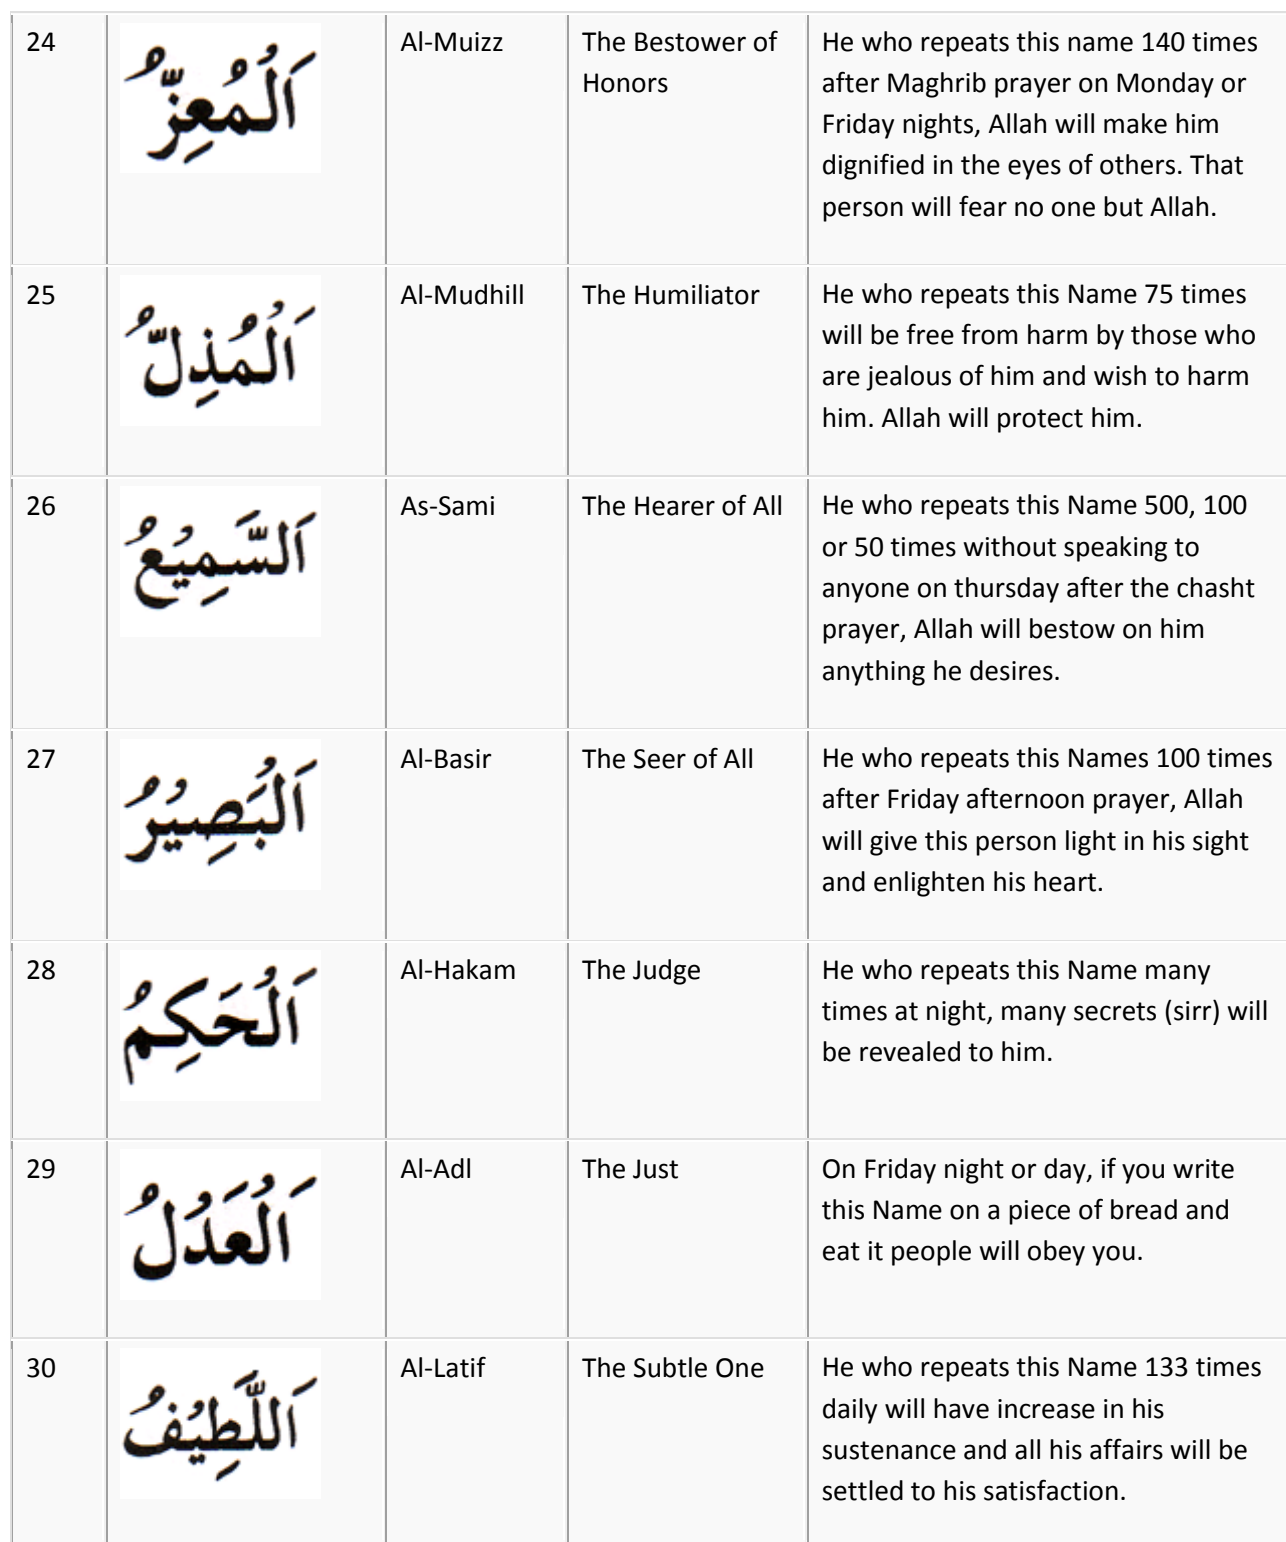 24
اَلْمُعِزُّ
Al-Muizz
The Bestower of
Honors
He who repeats this name 140 times
after Maghrib prayer on Monday or
Friday nights, Allah will make him
dignified in the eyes of others. That
person will fear no one but Allah.
25
اَلْمُذِلُّ
Al-Mudhill
The Humiliator
He who repeats this Name 75 times
will be free from harm by those who
are jealous of him and wish to harm
him. Allah will protect him.
26
اَلسَّمِيْعُ
As-Sami
The Hearer of All
He who repeats this Name 500, 100
or 50 times without speaking to
anyone on thursday after the chasht
prayer, Allah will bestow on him
anything he desires.
27
اَلْبَصِيْرُ
Al-Basir
The Seer of All
He who repeats this Names 100 times
after Friday afternoon prayer, Allah
will give this person light in his sight
and enlighten his heart.
28
اَلْحَكِمُ
Al-Hakam
The Judge
He who repeats this Name many
times at night, many secrets (sirr) will
be revealed to him.
29
اَلْعَدْلُ
Al-Adl
The Just
On Friday night or day, if you write
this Name on a piece of bread and
eat it people will obey you.
30
اَللَّطِيْفُ
Al-Latif
The Subtle One
He who repeats this Name 133 times
daily will have increase in his
sustenance and all his affairs will be
settled to his satisfaction.